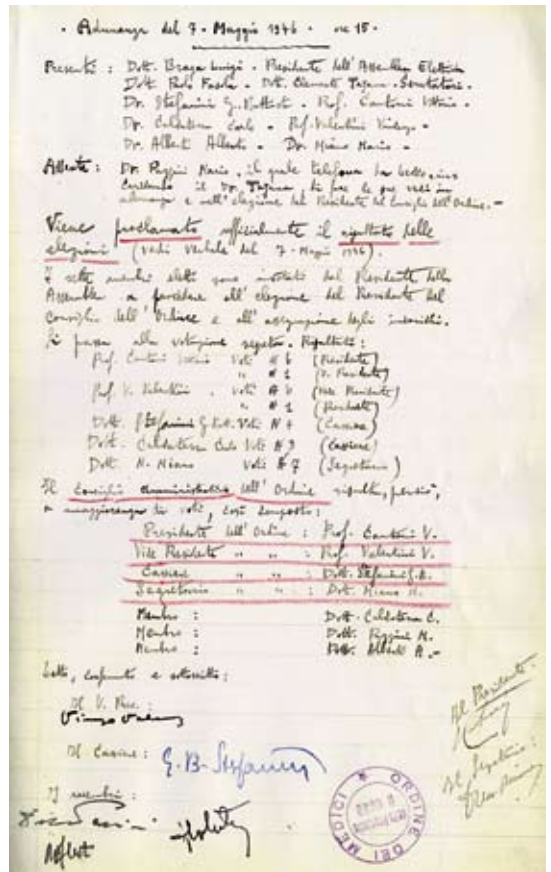 . Adunanza del 7 - Maggio 1946 - ore 15 -
Presenti : Dott. Braga Luigi - Presidente dell'Assemblea Elettiva
Dott. Paolo Fasola - Dott. Clemente Tajana - Scrutatori -
Dr. Stefanini G. Battista - Prof. Cantoni Vittorio -
Dr. Caldatera Carlo - Prof. Valentini
Dr. Alberti Alberto - Dr. Miano Mario -
Assente : Dr. Poggini Mario, il quale telefona
il Dr. Tajana, di fare le sue veci in
adunanza e nell'elezione del Presidente del Consiglio dell'Ordine. -
Viene proclamato ufficialmente il risultato delle
elezioni (vedi Verbale del 7 - Maggio 1946).
I sette membri eletti sono invitati dal Presidente della
Assemblea a procedere all'elezione del Presidente del
Consiglio dell'Ordine e all'assegnazione degli incarichi.
Si passa alla votazione segreta. Risultato :
Prof. Cantoni Voti N 6 (Presidente)
" N 1 (V. Presidente)
Prof. V. Valentini . voti N 6 (Vice Presidente)
" N 1 (Presidente)
Dott. Stefanini G. Batt. Voti N 4 (Cassiere)
Dott. Caldatera Carlo Voti N 3 (Cassiere)
Dott. M. Miano Voti N 7 (Segretario)
Il Consiglio amministrativo dell'Ordine risulta, perciò,
a maggioranza di voti, così composto :
Presidente dell'Ordine : Prof. Cantoni V.
Vice Presidente " " : Prof. Valentini V.
Cassiere " " : Dott. Stefanini G. B.
Segretario " " : Dott. Miano M.
Membro : Dott. Caldatera C.
Membro : Dott. Poggini M.
Membro : Dott. Alberti A. -
Letto, confermato e sottoscritto :
Il V. Pres. :
Il Cassiere : G. B. Stefanini
I membri :
Il Presidente :
Il Segretario :
ORDINE DEI MEDICI